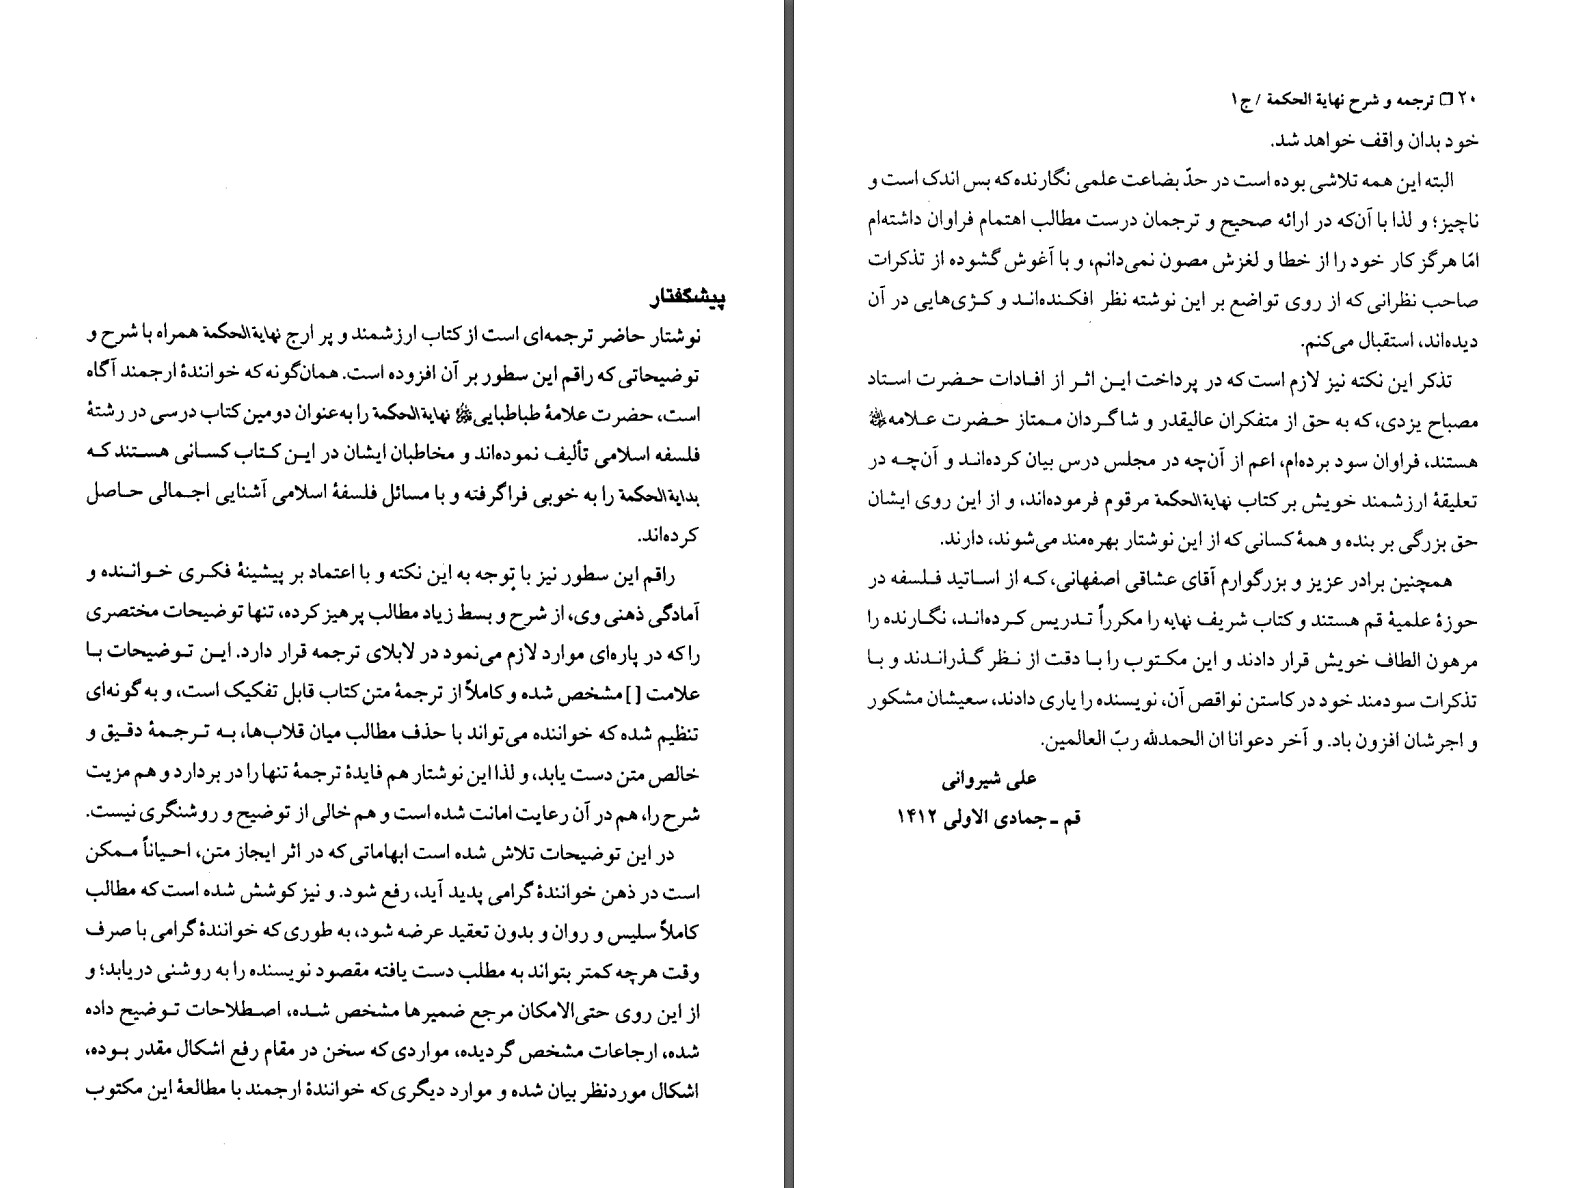 پیشگفتار
نوشتار حاضر ترجمه‌ای است از کتاب ارزشمند و پر ارج نهایةالحکمة همراه با شرح و
توضیحاتی که راقم این سطور بر آن افزوده است. همان‌گونه که خوانندهٔ ارجمند آگاه
است، حضرت علامهٔ طباطبایی نهایةالحکمة را به‌عنوان دومین کتاب درسی در رشتهٔ
فلسفه اسلامی تألیف نموده‌اند و مخاطبان ایشان در این کتاب کسانی هستند که
بدایةالحکمة را به خوبی فراگرفته و با مسائل فلسفهٔ اسلامی آشنایی اجمالی حاصل
کرده‌اند.
راقم این سطور نیز با توجه به این نکته و با اعتماد بر پیشینهٔ فکری خواننده و
آمادگی ذهنی وی، از شرح و بسط زیاد مطالب پرهیز کرده، تنها توضیحات مختصری
را که در پاره‌ای موارد لازم می‌نمود در لابلای ترجمه قرار دارد. این توضیحات با
علامت [ ] مشخص شده و کاملاً از ترجمهٔ متن کتاب قابل تفکیک است، و به گونه‌ای
تنظیم شده که خواننده می‌تواند با حذف مطالب میان قلاب‌ها، به ترجمهٔ دقیق و
خالص متن دست یابد، و لذا این نوشتار هم فایدهٔ ترجمهٔ تنها را در بردارد و هم مزیت
شرح را، هم در آن رعایت امانت شده است و هم خالی از توضیح و روشنگری نیست.
در این توضیحات تلاش شده است ابهاماتی که در اثر ایجاز متن، احیاناً ممکن
است در ذهن خوانندهٔ گرامی پدید آید، رفع شود. و نیز کوشش شده است که مطالب
کاملاً سلیس و روان و بدون تعقید عرضه شود، به طوری که خوانندهٔ گرامی با صرف
وقت هرچه کمتر بتواند به مطلب دست یافته مقصود نویسنده را به روشنی دریابد؛ و
از این روی حتی‌الامکان مرجع ضمیرها مشخص شده، اصطلاحات توضیح داده
شده، ارجاعات مشخص گردیده، مواردی که سخن در مقام رفع اشکال مقدر بوده،
اشکال موردنظر بیان شده و موارد دیگری که خوانندهٔ ارجمند با مطالعهٔ این مکتوب
۲۰ □ ترجمه و شرح نهایة الحکمة / ج۱
خود بدان واقف خواهد شد.
البته این همه تلاشی بوده است در حدّ بضاعت علمی نگارنده که بس اندک است و
ناچیز؛ و لذا با آن‌که در ارائه صحیح و ترجمان درست مطالب اهتمام فراوان داشته‌ام
امّا هرگز کار خود را از خطا و لغزش مصون نمی‌دانم، و با آغوش گشوده از تذکرات
صاحب نظرانی که از روی تواضع بر این نوشته نظر افکنده‌اند و کژی‌هایی در آن
دیده‌اند، استقبال می‌کنم.
تذکر این نکته نیز لازم است که در پرداخت این اثر از افادات حضرت استاد
مصباح یزدی، که به حق از متفکران عالیقدر و شاگردان ممتاز حضرت علامه
هستند، فراوان سود برده‌ام، اعم از آن‌چه در مجلس درس بیان کرده‌اند و آن‌چه در
تعلیقهٔ ارزشمند خویش بر کتاب نهایةالحکمة مرقوم فرموده‌اند، و از این روی ایشان
حق بزرگی بر بنده و همهٔ کسانی که از این نوشتار بهره‌مند می‌شوند، دارند.
همچنین برادر عزیز و بزرگوارم آقای عشاقی اصفهانی، که از اساتید فلسفه در
حوزهٔ علمیهٔ قم هستند و کتاب شریف نهایه را مکرراً تدریس کرده‌اند، نگارنده را
مرهون الطاف خویش قرار دادند و این مکتوب را با دقت از نظر گذراندند و با
تذکرات سودمند خود در کاستن نواقص آن، نویسنده را یاری دادند، سعیشان مشکور
و اجرشان افزون باد. و آخر دعوانا ان الحمدلله ربّ العالمین.
علی شیروانی
قم ـ جمادی الاولی ۱۴۱۲